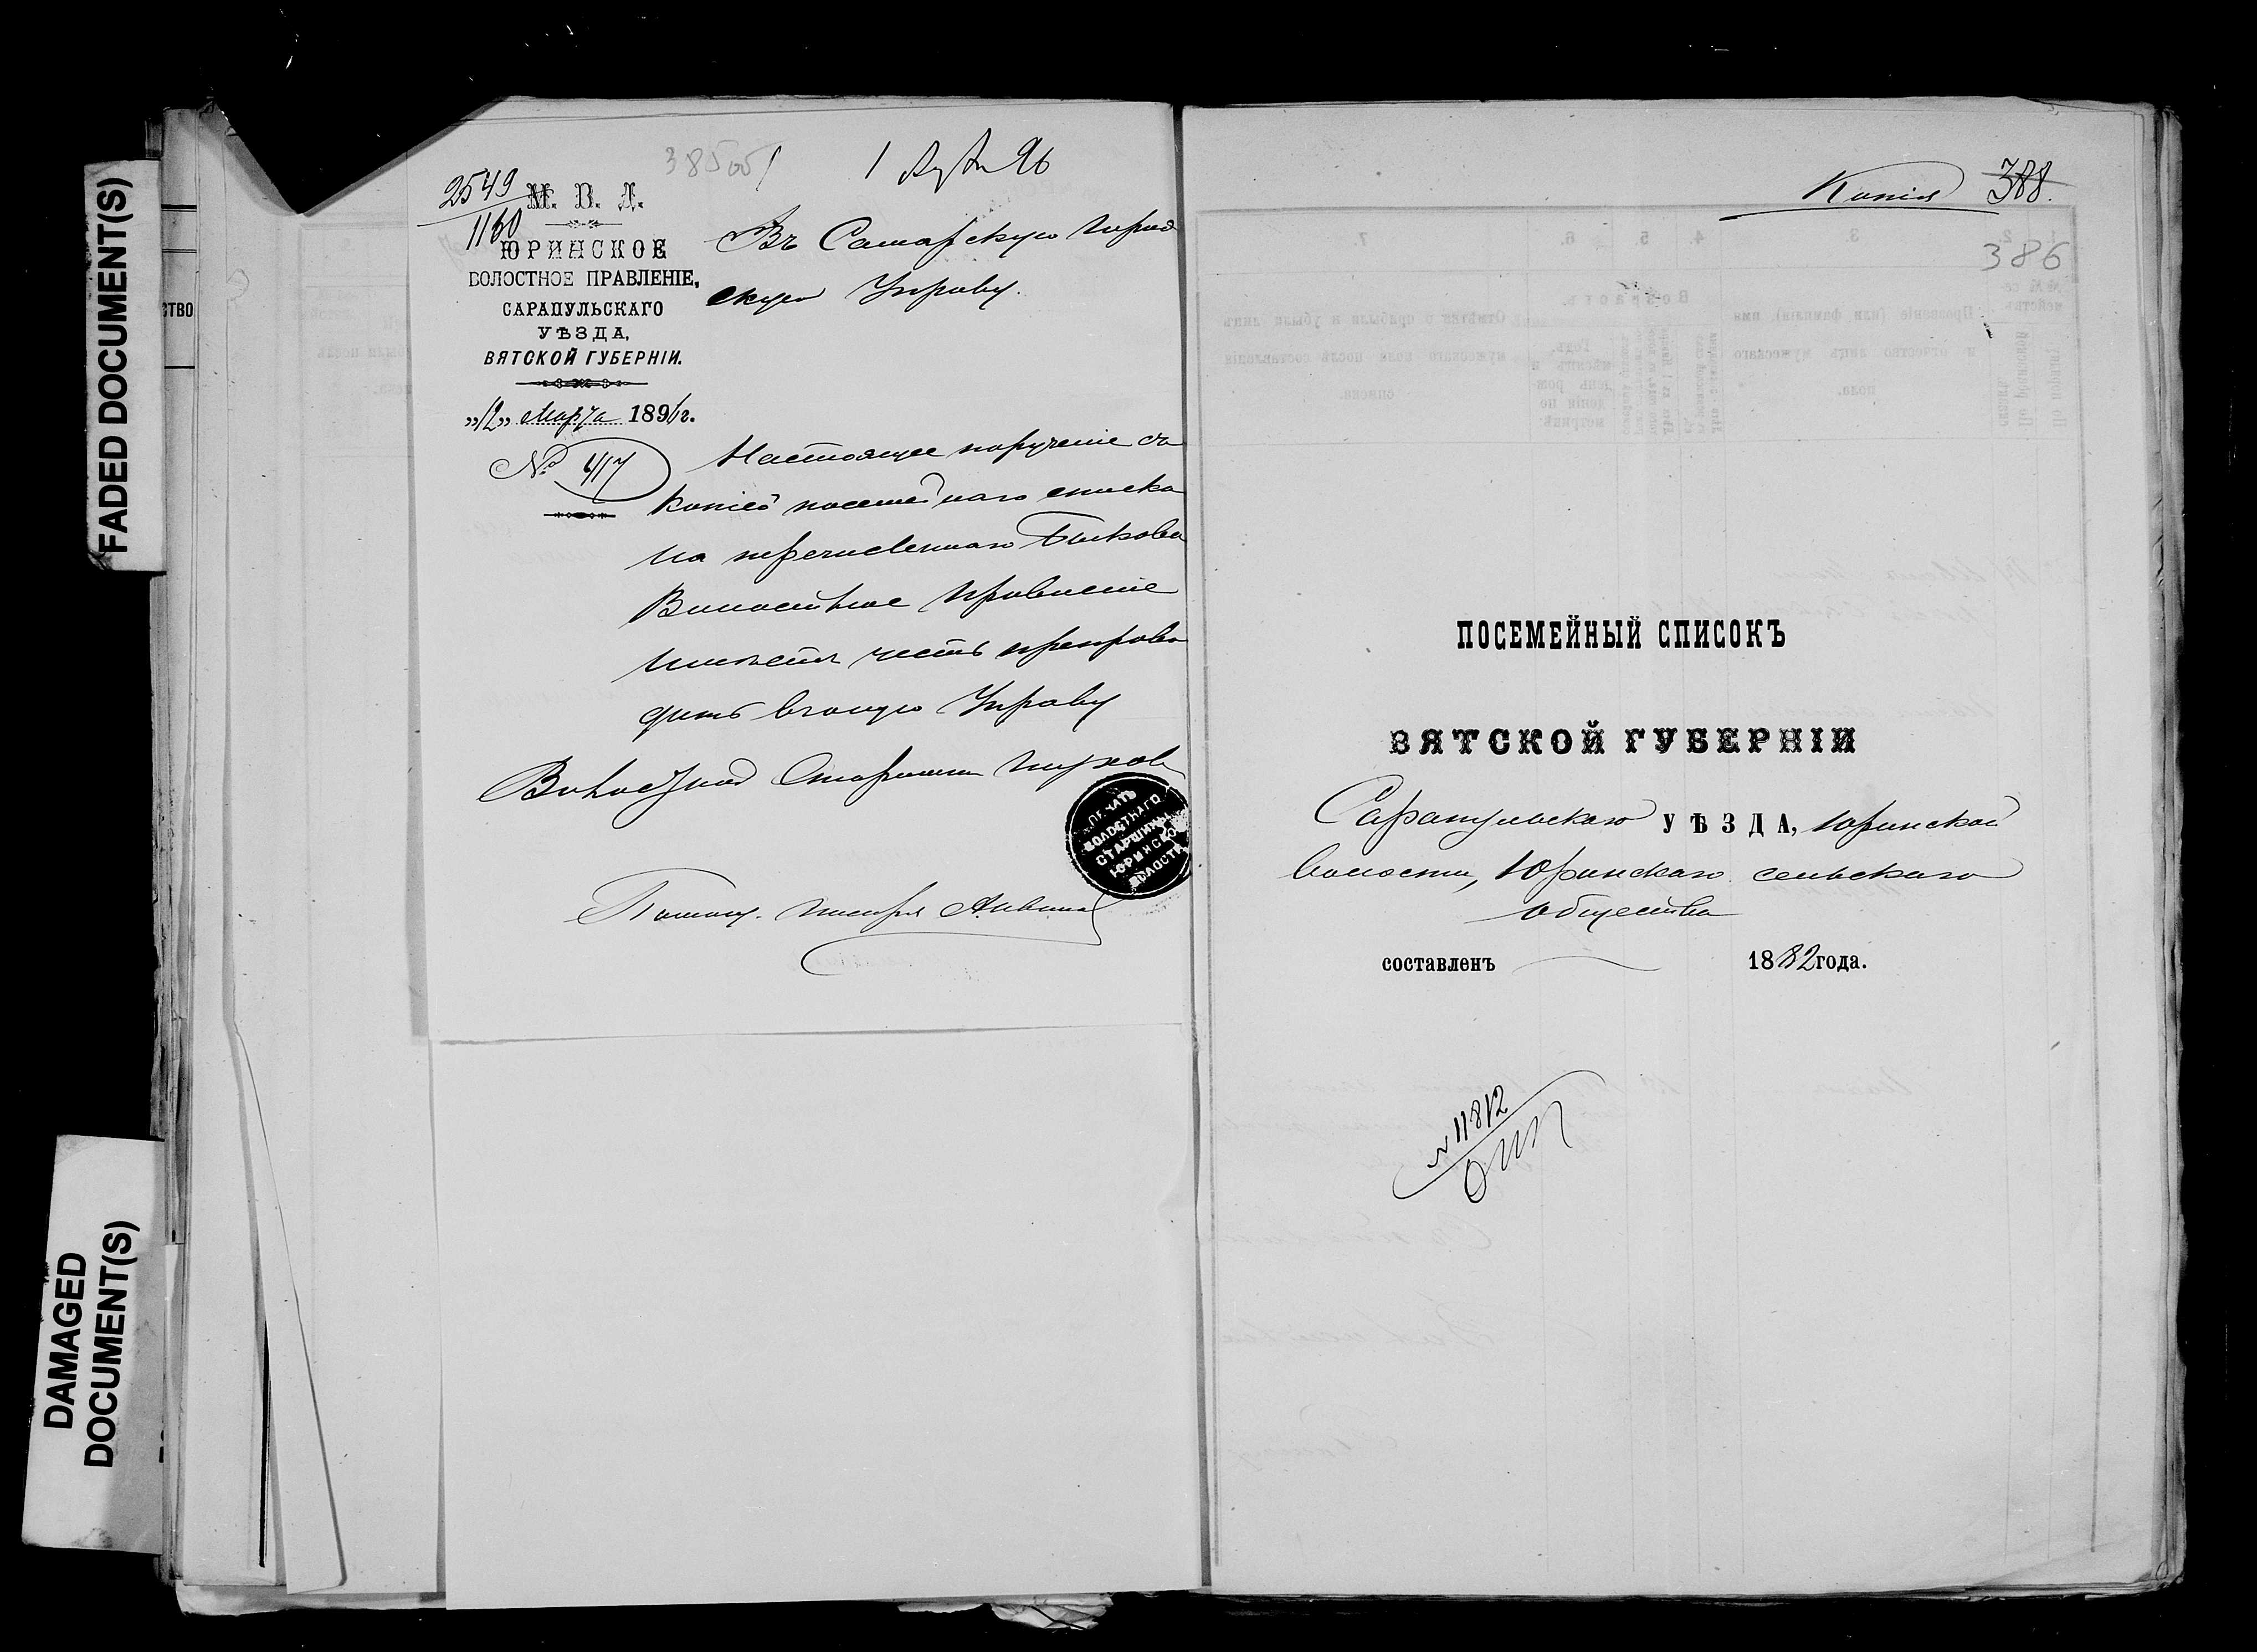 FADED DOCUMENT(S)
DAMAGED
DOCUMENT(S)
СТВО
2549
1160
385об
96
М. В. Д.
ЮРИНСКОЕ
ВОЛОСТНОЕ ПРАВЛЕНІЕ,
САРАПУЛЬСКАГО
УѢЗДА,
ВЯТСКОЙ ГУБЕРНІИ.
„12„ Марта 1896 г.
№ 417
Въ Самарскую Город
скую Управу.
Настоящее порученіе съ
копіей посемейнаго списка
на перечисленнаго Быкова
Волостное Правленіе
имѣетъ честь препрово
дить въ оную Управу
Волостной Старшина
ПЕЧАТЬ
ВОЛОСТНАГО
СТАРШИНЫ
ЮРИНСКОЙ
ВОЛОСТИ
Помощ. писаря
Копія 388.
386
ПОСЕМЕЙНЫЙ СПИСОКЪ
ВЯТСКОЙ ГУБЕРНІИ
Сарапульскаго УѢЗДА, Юринской
волости, Юринскаго сельскаго
общества
составленъ 1882 года.
№ 11812